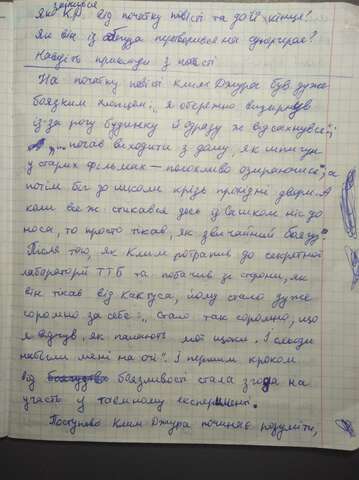 змінився
Як К.Д. від початку повісті та до її кінця?
Як він із боягуза перетворився на супергероя?
Наведіть приклади з повісті
На початку повісті Клим Джура був дуже
боязким хлопцем: „я обережно визирнув
із-за рогу будинку й одразу ж відсахнувся";
„почав виходити з дому, як шпигун
у старих фільмах — полохливо озираючися, а
потім біг до школи крізь проїзні двори. А
коли все ж стикався десь із Сашком ніс до
носа, то просто тікав, як звичайний боягуз".
Після того, як Клим потрапив до секретної
лабораторії ТТБ та побачив зі сторони, як
він тікав від Кактуса, йому стало дуже
соромно за себе: „Стало так соромно, що
я відчув, як палають мої щоки. І сльози
набігли мені на очі". І першим кроком
від боязливості стала згода на
участь у таємному експерименті.
Поступово Клим Джура починає розуміти,